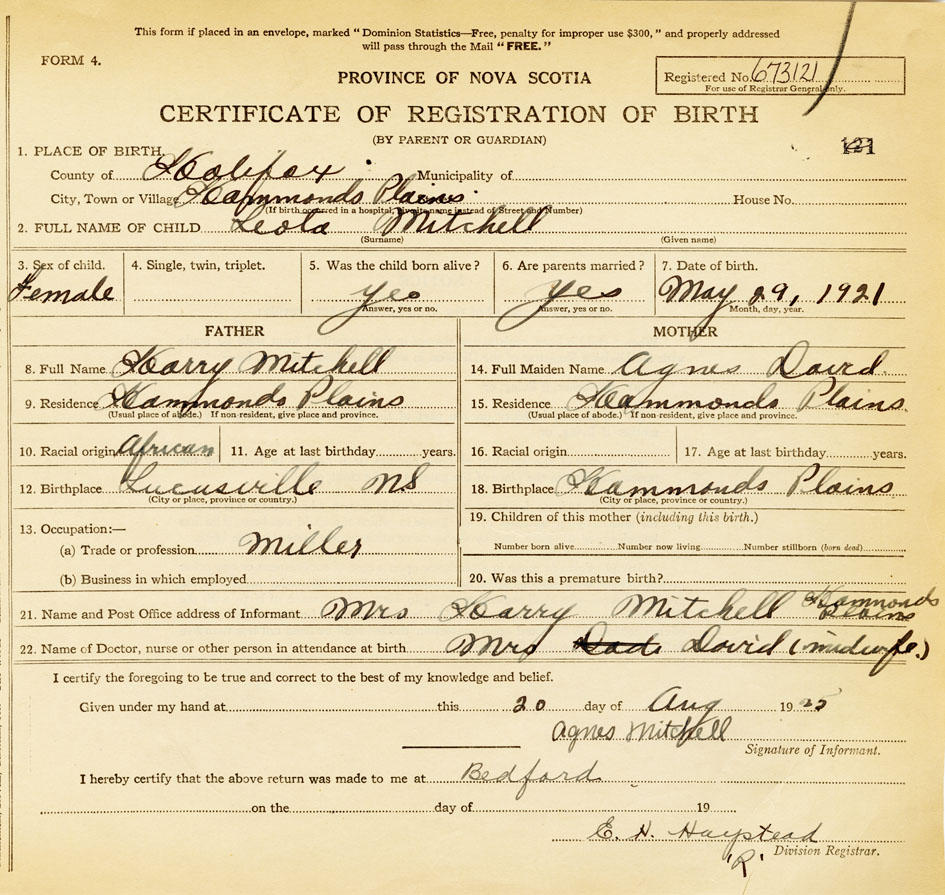 This form if placed in an envelope, marked "Dominion Statistics—Free, penalty for improper use $300," and properly addressed
will pass through the Mail "FREE."
FORM 4.
PROVINCE OF NOVA SCOTIA
Registered No. 673121
For use of Registrar General only.
CERTIFICATE OF REGISTRATION OF BIRTH
(BY PARENT OR GUARDIAN)
121
1. PLACE OF BIRTH.
County of Halifax Municipality of
City, Town or Village Hammonds Plains House No.
(If birth occurred in a hospital, give its name instead of Street and Number)
2. FULL NAME OF CHILD Leola Mitchell
(Surname) (Given name)
3. Sex of child. 4. Single, twin, triplet. 5. Was the child born alive? 6. Are parents married? 7. Date of birth.
Female yes yes May 29, 1921
Answer, yes or no. Answer, yes or no. Month, day, year.
FATHER MOTHER
8. Full Name Harry Mitchell 14. Full Maiden Name Agnes David
9. Residence Hammonds Plains 15. Residence Hammonds Plains
(Usual place of abode.) If non-resident, give place and province. (Usual place of abode.) If non-resident, give place and province.
10. Racial origin African 11. Age at last birthday years. 16. Racial origin 17. Age at last birthday years.
12. Birthplace Lucasville NS 18. Birthplace Hammonds Plains
(City or place, province or country.) (City or place, province or country.)
13. Occupation:— 19. Children of this mother (including this birth.)
(a) Trade or profession Miller
Number born alive Number now living Number stillborn (born dead)
(b) Business in which employed 20. Was this a premature birth?
21. Name and Post Office address of Informant Mrs Harry Mitchell Hammonds Plains
22. Name of Doctor, nurse or other person in attendance at birth Mrs David (midwife.)
I certify the foregoing to be true and correct to the best of my knowledge and belief.
Given under my hand at this 20 day of Aug 1925
Agnes Mitchell
Signature of Informant.
I hereby certify that the above return was made to me at Bedford
on the day of 19
E. H. Haystead
'R' Division Registrar.